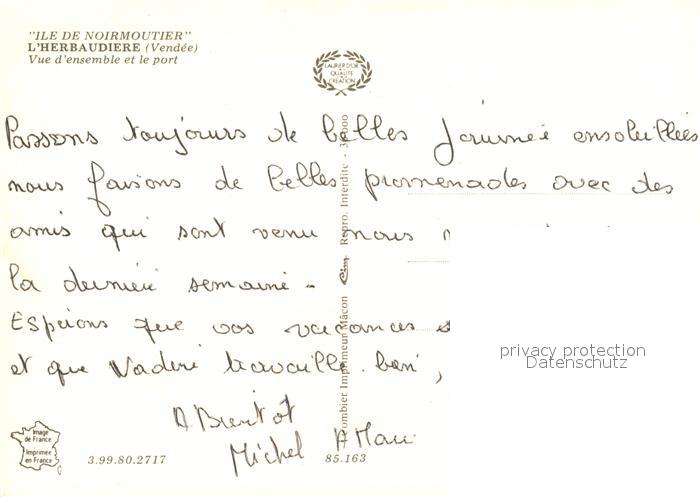 "ILE DE NOIRMOUTIER"
L'HERBAUDIERE (Vendée)
Vue d'ensemble et le port
LAURIER D'OR
DE LA
QUALITÉ
DE LA
CRÉATION
Passons toujours de belles journée ensoleillées
nous faisons de belles promenades avec des
amis qui sont venu nous
la dernière semaine -
Espérons que vos vacances
et que travaille bien,
A Bientôt
Michel
Combier Imprimeur Mâcon Cim Repro. Interdite -
privacy protection
Datenschutz
Image
de France
Imprimée
en France
3.99.80.2717
85.163